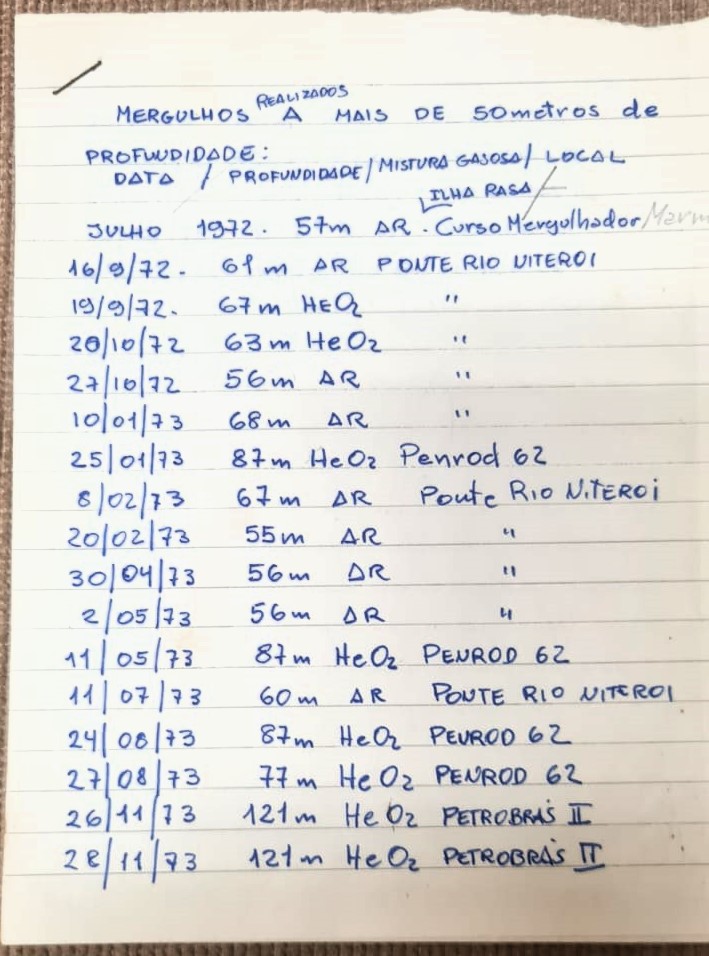 REALIZADOS
MERGULHOS A MAIS DE 50metros de
PROFUNDIDADE:
DATA / PROFUNDIDADE / MISTURA GASOSA / LOCAL
ILHA RASA
JULHO 1972. 57m AR. Curso Mergulhador/
16/9/72. 61m AR PONTE RIO NITEROI
19/9/72. 67m HEO2 "
20/10/72 63m HeO2 "
27/10/72 56m AR "
10/01/73 68m AR "
25/01/73 87m HeO2 Penrod 62
8/02/73 67m AR Ponte RIO NiTEROi
20/02/73 55m AR "
30/04/73 56m AR "
2/05/73 56m AR "
11/05/73 87m HeO2 PENROD 62
11/07/73 60m AR PONTE RIO NITEROI
24/08/73 87m HeO2 PENROD 62
27/08/73 77m HeO2 PENROD 62
26/11/73 121m HeO2 PETROBRÁS II
28/11/73 121m HeO2 PETROBRÁS II